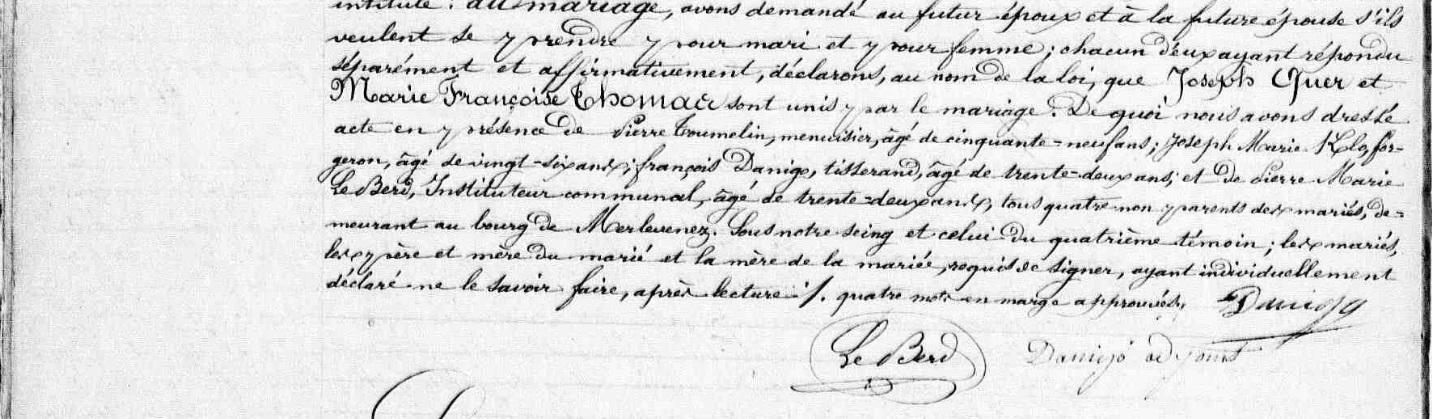 intitulé : du mariage, avons demandé au futur époux et à la future épouse s'ils
veulent se prendre pour mari et pour femme ; chacun d'eux ayant répondu
séparément et affirmativement, déclarons, au nom de la loi, que Joseph Quer et
Marie Françoise Thomas sont unis par le mariage. De quoi nous avons dressé
acte en présence de Pierre Toumelin, menuisier, âgé de cinquante-neuf ans ; Joseph Marie for-
geron, âgé de vingt-six ans ; françois Danigo, tisserand, âgé de trente-deux ans, et de Pierre Marie
Le Berd, Instituteur communal, âgé de trente-deux ans, tous quatre non parents des mariés, de-
meurant au bourg de Merlevenez. Sous notre seing et celui du quatrième témoin ; les mariés,
les père et mère du marié et la mère de la mariée, requis de signer, ayant individuellement
déclaré ne le savoir faire, après lecture ./. quatre mots en marge approuvés.
Le Berd Danigo